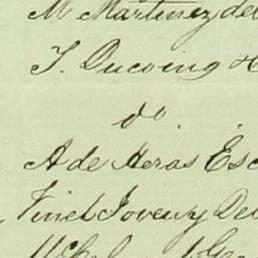 M Martinez del
J. Ducoing &
do
A de Heras Esc
Vinet Joveny De